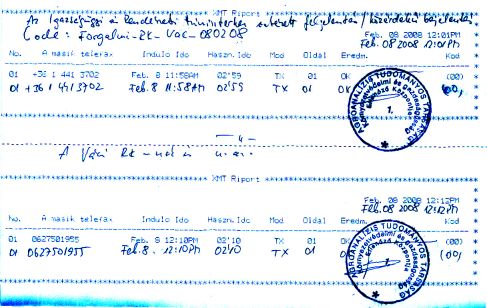 Az Igazságügyi és Rendészeti
Code: Forgalmi-RK-Vác-080208
XMT Riport
Feb. 08 2008 12:01PM
Feb. 08 2008 12:01PM
No. A masik telefax Indulo Ido Haszn.Ido Mod Oldal Eredm. Kod
01 +36 1 441 3702 Feb. 8 11:58AM 02'59 TX 01 OK (00)
01 +36 1 441 3702 Feb. 8 11:58AM 02'59 TX 01 OK (00)
AGROANALÍZIS TUDOMÁNYOS TÁRSASÁG
Környezetvédelmi és gazdaságossági
Központja
1.
A Váci RK-nak is
XMT Riport
Feb. 08 2008 12:12PM
Feb. 08 2008 12:12PM
No. A masik telefax Indulo Ido Haszn.Ido Mod Oldal Eredm. Kod
01 0627501955 Feb. 8 12:10PM 02'10 TX 01 OK (00)
01 0627501955 Feb. 8. 12:10PM 02'10 TX 01 OK (00)
AGROANALÍZIS TUDOMÁNYOS TÁRSASÁG
Környezetvédelmi és gazdaságossági
Központja
1.